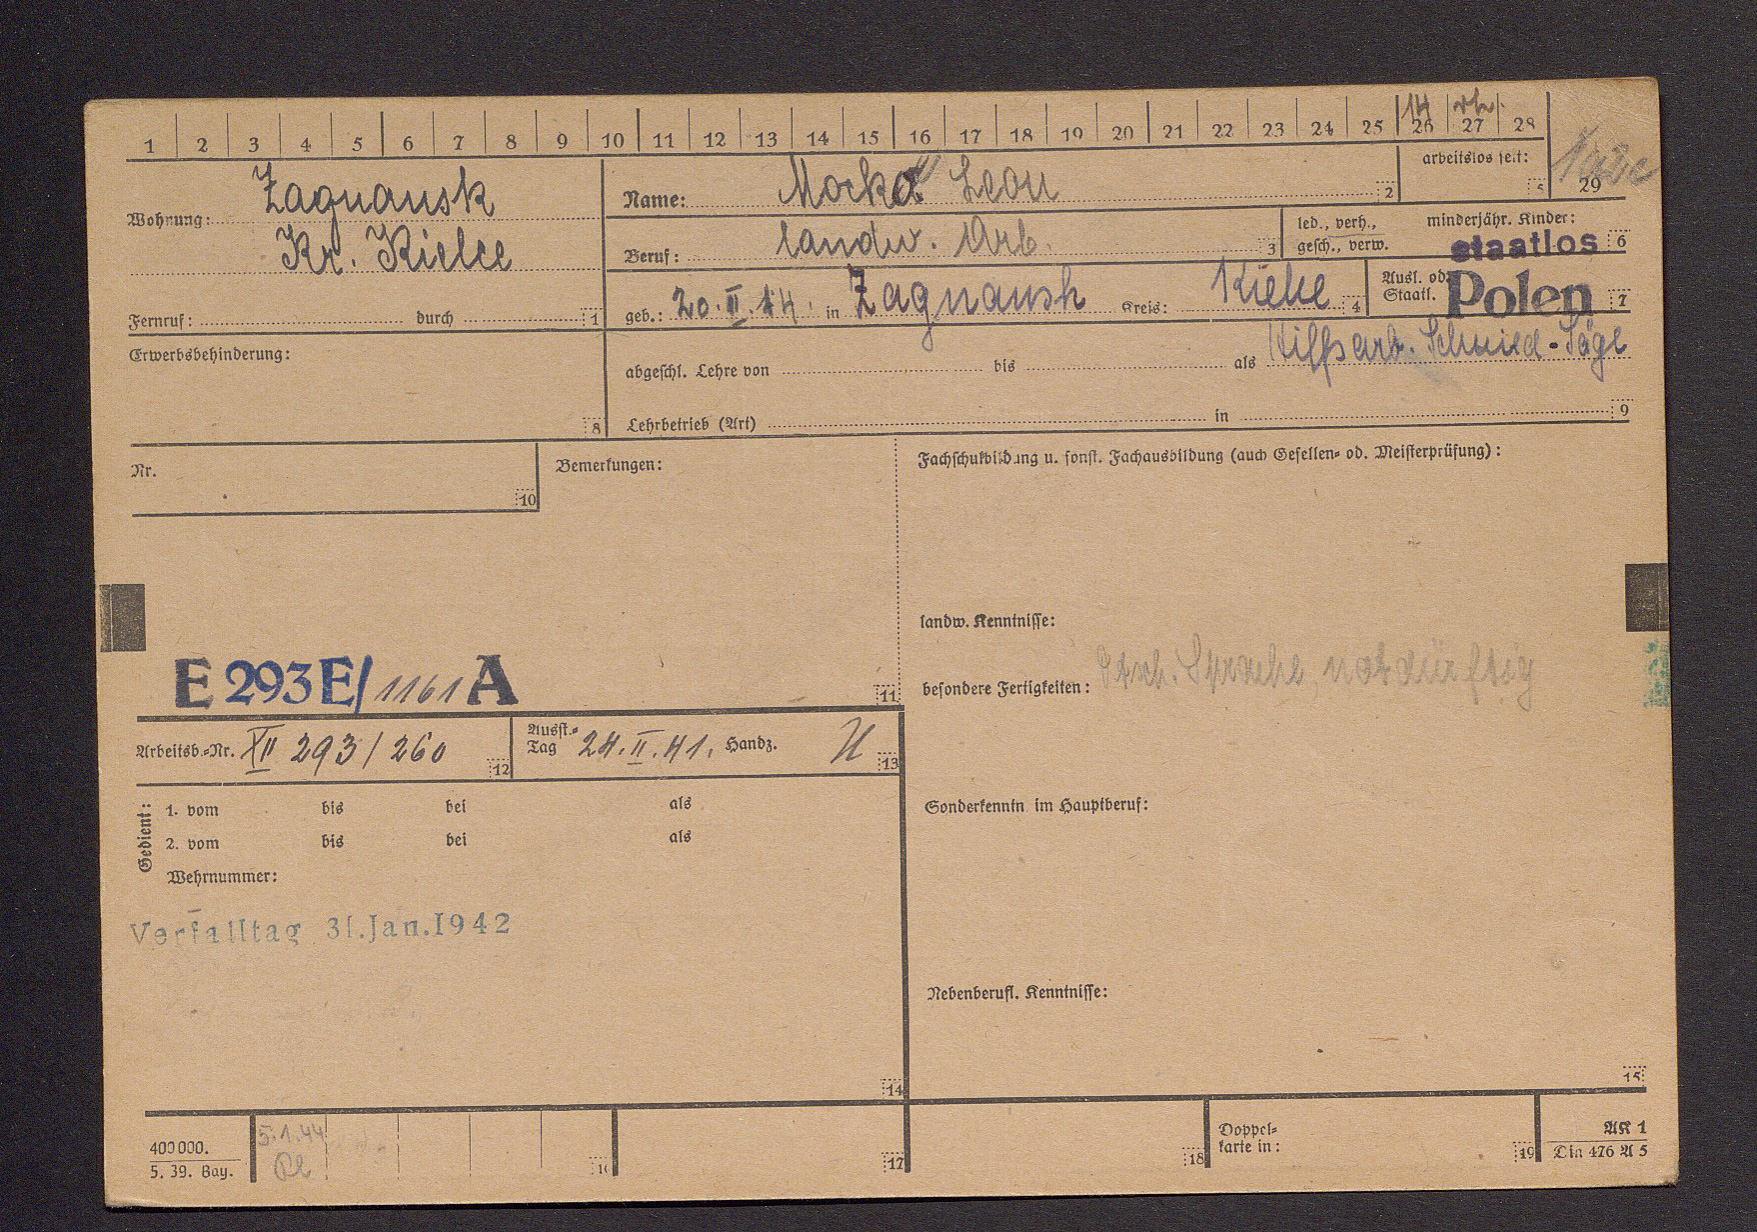 14 rk.
1 2 3 4 5 6 7 8 9 10 11 12 13 14 15 16 17 18 19 20 21 22 23 24 25 26 27 28
29
Wohnung: Zagnansk
Kr. Kielce
Fernruf: durch 1
Name: Mocka Leon 2
arbeitslos seit: 5
Beruf: landw. Arb. 3
led., verh., gesch., verw.
minderjähr. Kinder: 6
staatlos
geb.: 20.II.14. in Zagnansk Kreis: Kielce 4
Ausl. od. Staatl. Polen 7
Erwerbsbehinderung: 8
abgeschl. Lehre von bis als Hilfsarb. Schmied-Säge
Lehrbetrieb (Art) in 9
Nr. 10
Bemerkungen:
Fachschulbildung u. sonst. Fachausbildung (auch Gesellen- od. Meisterprüfung):
landw. Kenntnisse:
besondere Fertigkeiten: Dtsch. Sprache notdürftig
E 293 E/1161 A 11
Arbeitsb.-Nr. XII 293/260 12
Ausst.-Tag 24.II.41. Handz. 13
Gedient:
1. vom bis bei als
2. vom bis bei als
Wehrnummer:
Sonderkenntn im Hauptberuf:
Verfalltag 31.Jan.1942
Nebenberufl. Kenntnisse:
14
15
400 000.
5. 39. Bay.
5.1.44
16
17
18
Doppel-
karte in: 19
AK 1
Din 476 A 5